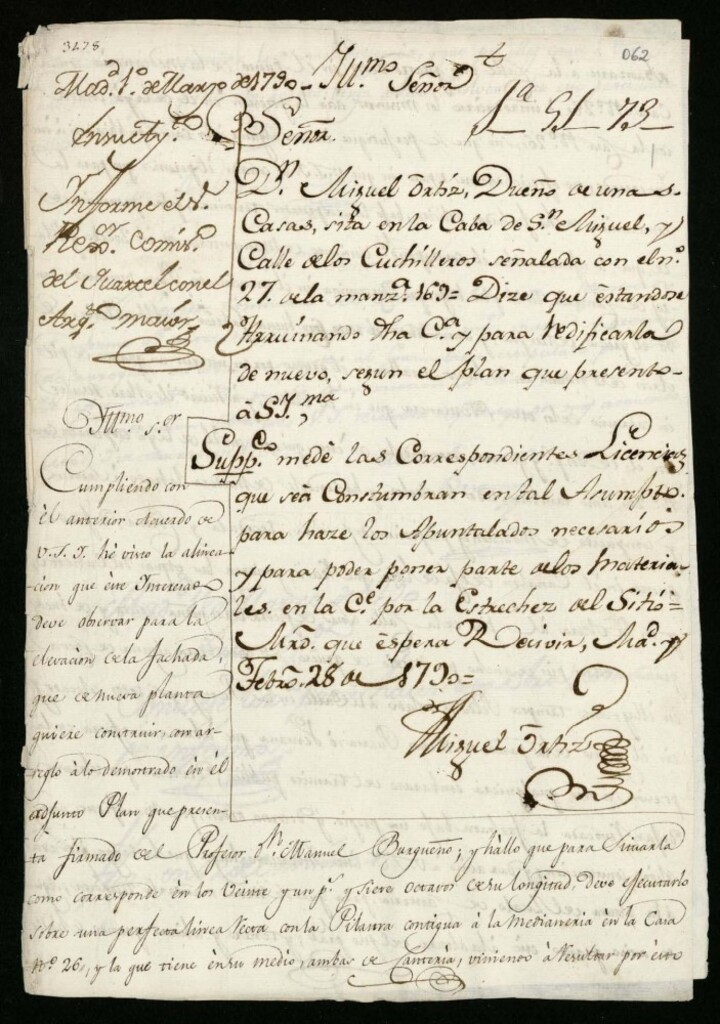 3278
062
Mad.d 1.o de Marzo de 1790
Yll.mo Señor
1a 51 73
Señor.
Informe el S.r
Rex.or Comis.o
del Quartel con el
Arq.to maior
D.n Miguel Ortiz, Dueño de unas
Casas, sita en la Caba de S.n Miguel, y
Calle de los Cuchilleros señalada con el n.o
27. de la manz.a 169= Dize que estandose
Arruinando dha C.a y para redificarla
de nuevo, segun el plan que presento
à S.Y.ma
Supp.co me dè las Correspondientes Licencias
que se à Constumbran en tal Asumpto.
para haze los Apuntalados necesariòs
y para poder poner parte de los materia-
les. en la C.e por la Estrechez del Sitiò=
Mrd. que èspera Recivir, Mad. y
Febro. 28 de 1790=
Miguel Ortiz
Yll.mo S.or
Cumpliendo con
èl anterior Acuerdo de
V.S.Y. hè visto la alinea-
cion que este Interesado
deve observar para la
elevacion de la fachada,
que de nueva planta
quiere construir, con ar-
reglo à lo demostrado en èl
adjunto Plan que presen-
ta firmado del Profesor D.n Manuel Burgueño; y hàllo que para situarla
como corresponde èn los veinte y un p.s y siete octavos de su longitud, deve ejecutarlo
sobre una perfecta linea recta con la Pilastra contigua à la medianeria èn la Casa
N.o 26, y la que tiene èn su medio, ambas de Canterìa, viniendo à resultar por èsto